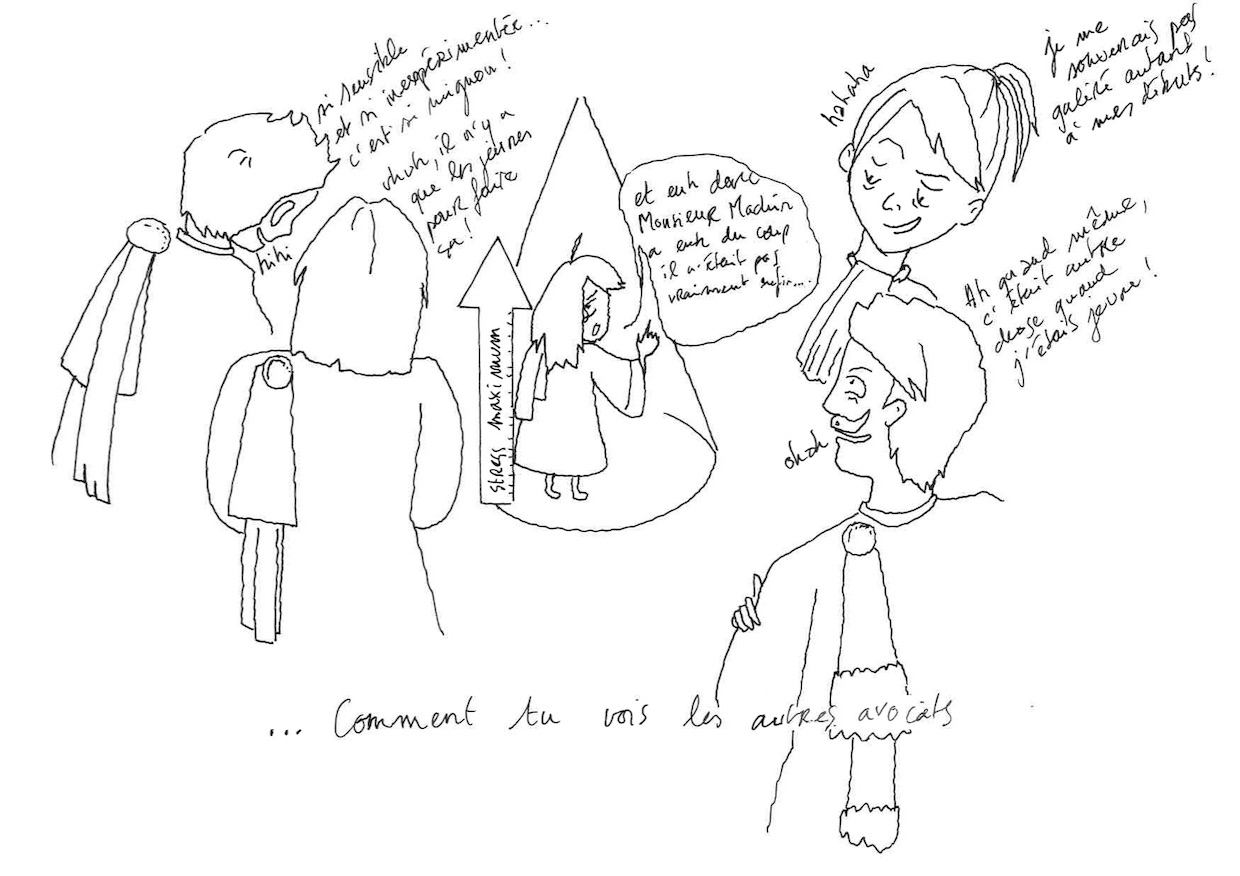 si sensible
et si inexpérimentée...
c'est si mignon !
ohoh, il n'y a
que les jeunes
pour faire
ça !
hihi
stress maximum
et euh donc
Monsieur Machin
a euh du coup
il n'était pas
vraiment enfin...
hahaha
je me
souvenais pas
galéré autant
à mes débuts !
Ah quand même,
c'était autre
chose quand
j'étais jeune !
ohoh
... Comment tu vois les autres avocats